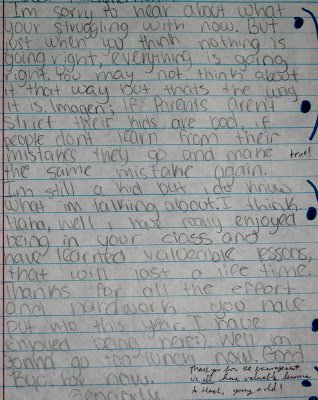 Im sorry to hear about what
your struggling with now. But
just when you think nothing is
going right, everything is going
right. You may not think about
it that way but thats the way
it is. Imagen; if parents arent
strict their kids are bad, if
people dont learn from their
mistakes they go and make
true!
the same mistake again.
Im still a kid but i do know
what im talking about. I think.
Haha, well i have really enjoyed
being in your class and
have learned valuerible lessons,
that will last a life time.
thanks for all the effort
and hardwork you have
put into this year. I have
enjoyed being here:). Well im
gonna go too lunch now. Good
Bye, for now.
Thank you for the encouragement.
We all have valuable lessons
to teach, young & old!